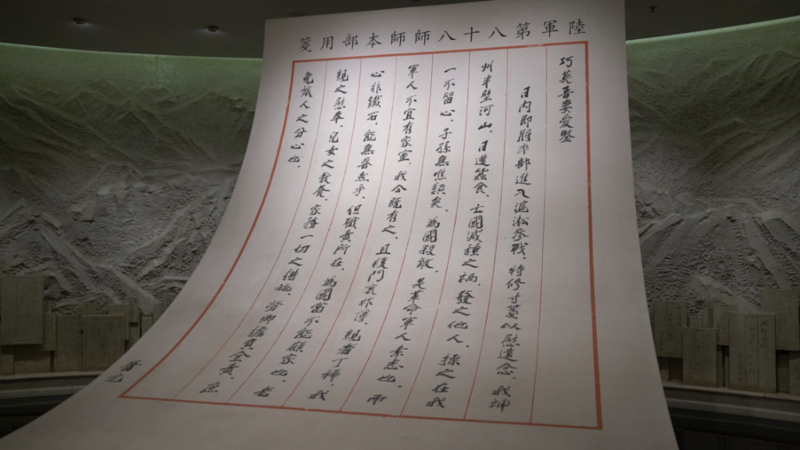 陸軍第八十八師師本部用箋
巧英吾妻愛鑒
日內即將率部進入滬淞參戰,特修寸箋以慰遠念。我神
州半壁河山,日遭蠶食,亡國滅種之禍,發之他人,操之在我
一不留心,子孫無噍類矣。為國殺敵,是革命軍人素志也,而
軍人不宜有家室,我今既有之,且復門衰祚薄,親者丁稀,我
心非鐵石,能無眷然乎,但職責所在,為國當不能顧家也。老
親之慰奉,兒女之教養,家務一切之措施,勞卿擔負全責,庶
免旅人之分心也。
晉元